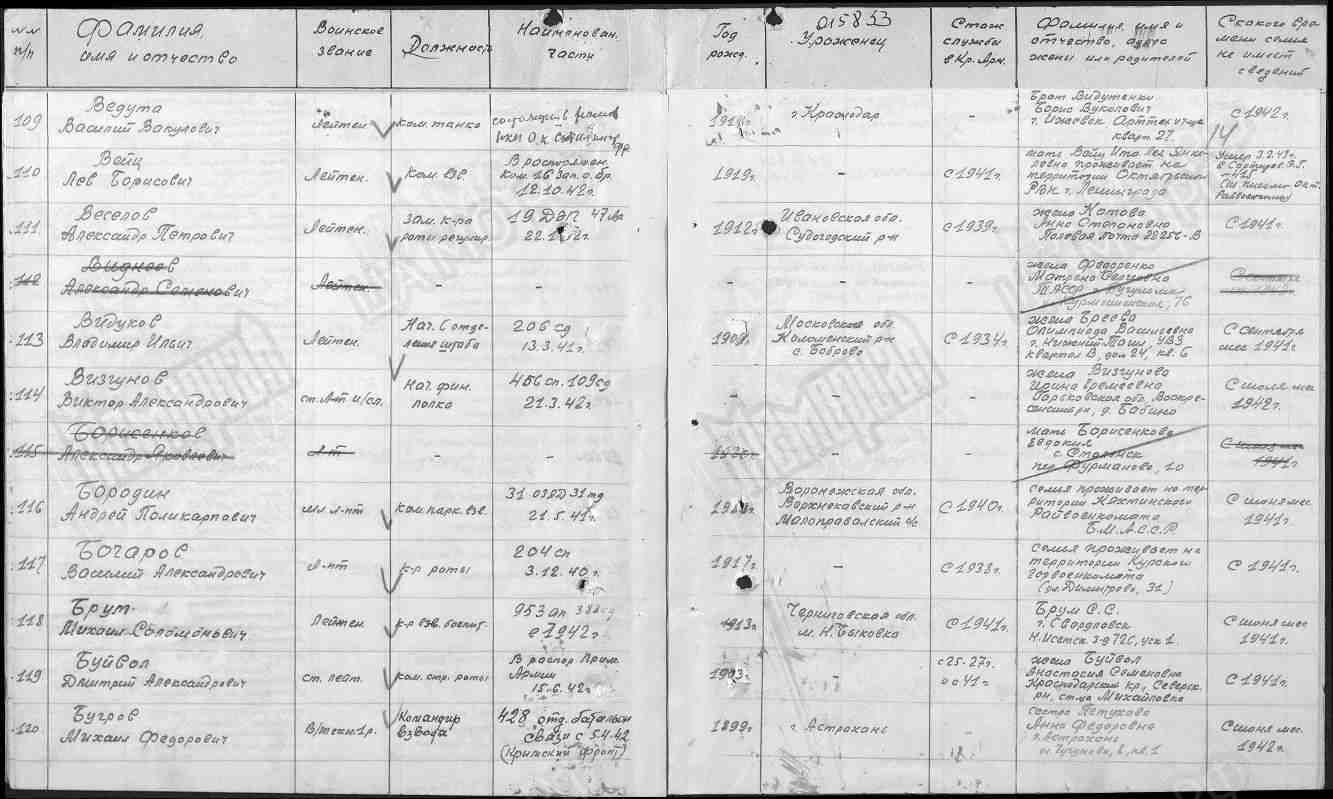 №№ п/п
Фамилия,
имя и отчество
Воинское
звание
Должность
Наименован.
части
Год
рожд.
015853
Уроженец
Стаж
службы
в Кр. Арм.
Фамилия, имя и
отчество, адрес
жены или родителей
С какого вре
мени семья
не имеет
сведений
109
Ведута
Василий Вакулович
Лейтен
ком. танка
г. Краснодар
-
Брат Видутенко
Борис Вуколович
г. Ижевск
кварт. 27
с 1942 г.
14
110
Вейц
Лев Борисович
Лейтен.
Ком. взв.
В распоряжен.
Ком. 16 зап. а. бр.
12.10.42 г.
1919 г.
-
с 1941 г.
мать Вайц
проживает на
территории Октябрьског
РВК г. Ленинграда
111
Веселов
Александр Петрович
Лейтен.
Зам. к-ра
роты
19 ДЭП
1912 г.
Ивановская обл.
Судогодский р-н
с 1939 г.
жена Котова
Анна Степановна
Полевая почта 28256-В
с 1941 г.
112
Александр Семенович
Лейтен.
-
-
-
-
-
жена Федоренко
Матрена
ТАССР
76
113
Видуков
Владимир Ильич
Лейтен.
Нач. 6 отде-
ления штаба
206 сд
13.3.41 г.
Московская обл.
Коломенский р-н
с. Боброво
с 1934 г.
жена Бреева
Олимпиада Васильевна
г. Нижний Тагил, УВЗ
квартал В, дом 24, кв. 6
С сентября
мес 1941 г
114
Визгунов
Виктор Александрович
ст. л-т и/сл.
Нач. фин.
полка
456 сп. 109 сд
21.3.42 г.
-
-
-
жена Визгунова
Ирина Еремеевна
Горьковская обл, Воскре-
сенский р-н, д. Бабино
С июля ме.
1942 г.
115
Борисенков
Александр Яковлевич
л-т
-
-
-
-
мать Борисенкова
Евдокия
г. Смоленск
пос. Фурманова, 10
1941 г
116
Бородин
Андрей Поликарпович
мл. л-т
ком парк. взв.
31 тд
21.5.41 г.
Воронежская обл.
Верхнехавский р-н
с 1940 г.
семья проживает на тер-
ритории Кяхтинского
Райвоенкомата
Б.М.А.С.С.Р.
С июня мес.
1941 г.
117
Бочаров
Василий Александрович
л-т
к-р роты
204 сп
3.12.40 г.
1917 г.
-
с 1938 г.
семья проживает на
территории Курского
Горвоенкомата
(ул. Димитрова, 31)
с 1941 г.
118
Брут
Михаил Соломонович
Лейтен
к-р взв. боепит.
953 ап
с 1942 г.
1913 г
Черниговская обл.
м. Н. Быковка
с 1941 г.
Брум С. С.
г. Свердловск
С июня мес
1941 г.
119
Буйвол
Дмитрий Александрович
ст. лейт.
ком. стр. роты
В распор Прим.
Армии
15.6.42 г.
1903 г.
-
с 25-27 г.
и с 41 г.
жена Буйвол
Анастасия Семеновна
Краснодарский кр., Северск.
рн, ст-ца Михайловка
с 1941 г.
120
Бугров
Михаил Федорович
В/техн. 1 р.
Командир
взвода
428 отд. батальон
связи с 5.4.42
(Крымский фронт)
1899 г.
г. Астрахань
-
сестра Петухова
Анна Федоровна
г. Астрахань
С июня мес.
1942 г.